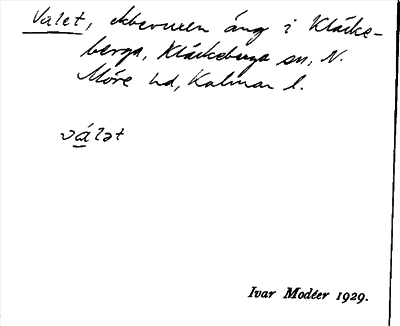 Valet, obevuxen äng i Kläcke-
berga, Kläckeberga sn, N.
Möre hd, Kalmar l.
válət
Ivar Modéer 1929.